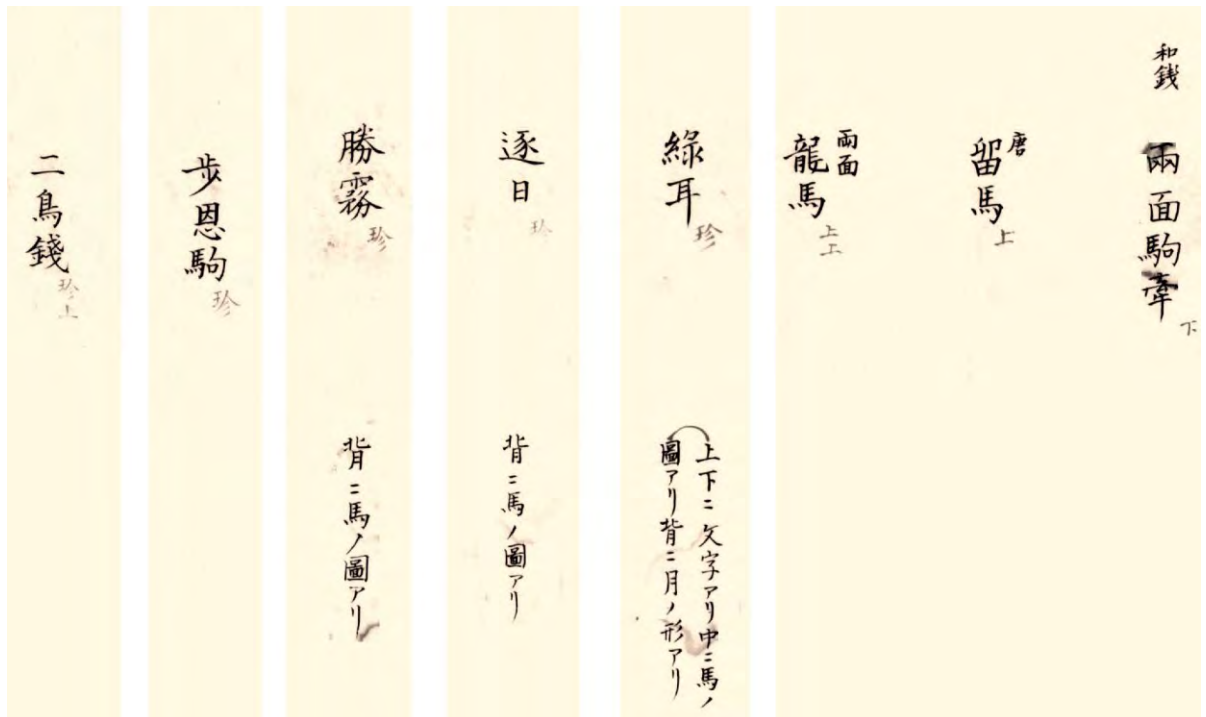 和錢
兩面駒牽 下
唐
留馬 上
兩面
龍馬 上工
綠耳 珍
上下ニ文字アリ中ニ馬ノ
圖アリ背ニ月ノ形アリ
逐日 珍
背ニ馬ノ圖アリ
勝霧 珍
背ニ馬ノ圖アリ
步恩駒 珍
二鳥錢 珍上